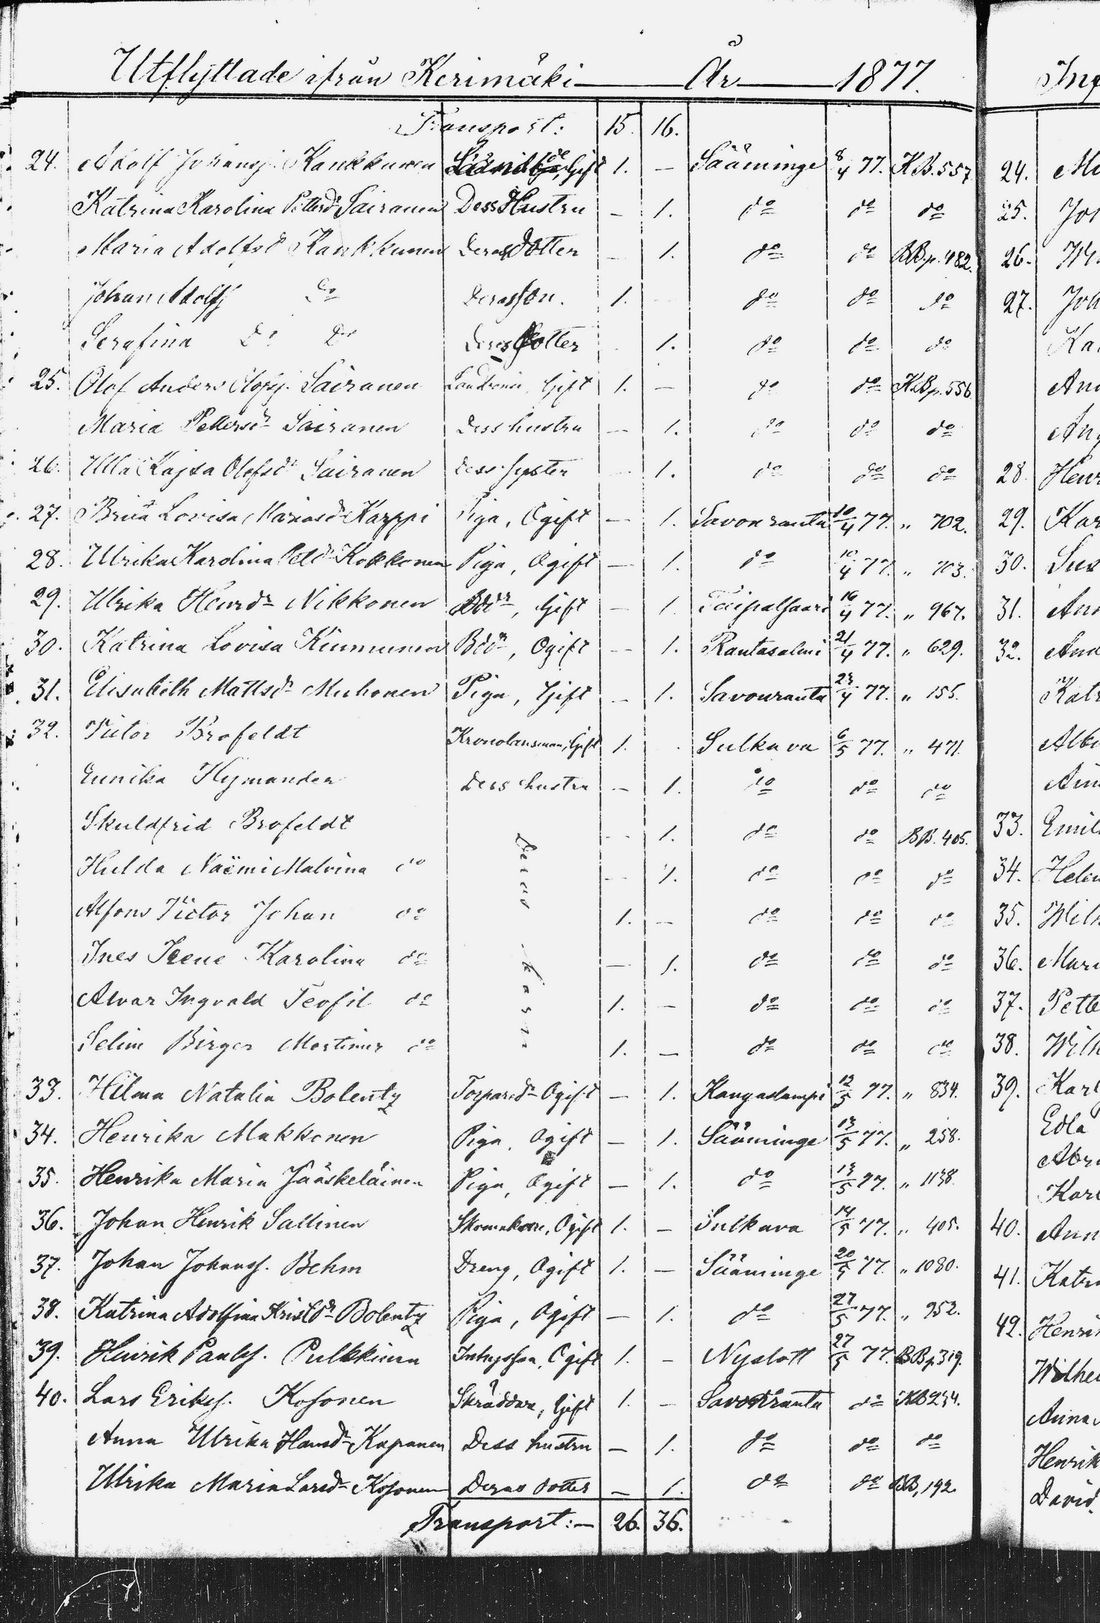 Utflyttade ifrån Kerimäki År 1877.
Transport: 15. 16.
24. Adolf Johansj. Kankkunen Gift 1. — Sääminge 8/4 77. K.B. 557
Katrina Karolina Pettersdr Sairanen Dess Hustru — 1. do do do
Maria Adolfsdr Kankkunen Deras Dotter — 1. do do B.B.p. 482.
Johan Adolfsj do Deras son. 1. do do do
Serafina do do Deras Dotter 1. do do do
25. Olof Anders Olofsj. Sairanen Gift 1. — do do K.B.p. 556
Maria Pettersdr Sairanen Dess hustru — 1. do do do
26. Ulla Kajsa Olofsdr Sairanen Dess syster 1. do do do
27. Brita Lovisa Mariasdr Karppi Piga, Ogift — 1. Savonranta 10/4 77. „ 702.
28. Ulrika Karolina Pettdr Kokkonen Piga, Ogift — 1. do 10/4 77. „ 703.
29. Ulrika Henrdr Nikkonen Bdr, Gift — 1. Taipalsaari 16/4 77. „ 967.
30. Katrina Lovisa Kinnunen Bdr, Ogift — 1. Rantasalmi 21/4 77. „ 629.
31. Elisabeth Mattsdr Muhonen Piga, Gift — 1. Savonranta 23/4 77. „ 155.
32. Victor Brofeldt Kronolänsman, Gift 1. Sulkava 6/5 77. „ 471.
Eunika Hymander Dess hustru — 1. do do do
Skuldfrid Brofeldt Deras barn 1. do do B.B. 405.
Hulda Naëmi Malvina do 1. do do do
Alfons Victor Johan do 1. — do do do
Ines Irene Karolina do — 1. do do do
Alvar Ingvald Teofil do 1. — do do do
Selim Birger Mortimer do 1. — do do do
33. Hilma Natalia Bolentz Torparedr Ogift — 1. Kangaslampi 12/5 77. „ 834.
34. Henrika Makkonen Piga, Ogift — 1. Sääminge 13/5 77. „ 258.
35. Henrika Maria Jääskeläinen Piga, Ogift — 1. do 13/5 77. „ 1138.
36. Johan Henrik Sallinen Skomakare, Ogift 1. — Sulkava 14/5 77. „ 405.
37. Johan Johansj. Behm Dreng, Ogift 1. — Sääminge 20/5 77. „ 1080.
38. Katrina Adolfina Kristdr Bolentz Piga, Ogift — 1. do 27/5 77. „ 952.
39. Henrik Paulsj. Pulkkinen Inhyseson, Ogift 1. — Nyslott 27/5 77. B.B.p. 319.
40. Lars Eriksj. Kosonen Skräddare, Gift 1. — Savonranta do K.B. 254.
Anna Ulrika Hansdr Kapanen Dess hustru — 1. do do do
Ulrika Maria Larsdr Kosonen Deras dotter — 1. do do B.B. 192.
Transport:— 26. 36.
24.
25.
26.
27. Joh
28. Henr
29. Kar
30. Sus
31. Ann
32. And
Katr
33. Emil
34. Helen
35. Wilh
36. Mari
37. Pette
38. Wilh
39. Karl
Edla
40. Ann
41. Katri
42. Henri
Wilhel
Anna
Henrik
David